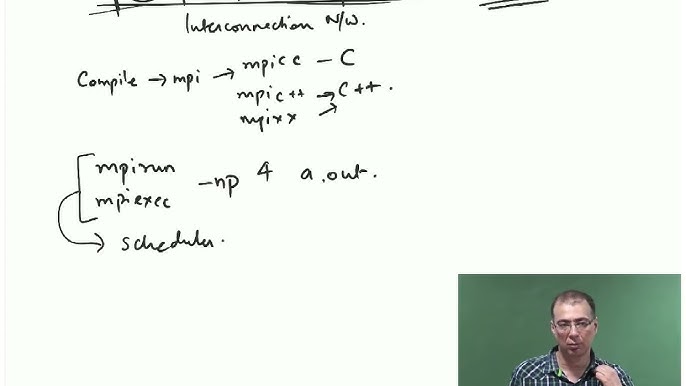 Interconnection N/W.
Compile → mpi → mpicc – C
mpic++ → C++.
mpixx →
mpirun
mpiexec
–np 4 a.out.
→ scheduler.